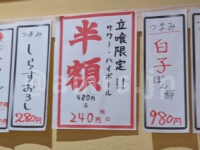 つまみ
白子ぽん酢
980円
立喰限定!!
サワー・ハイボール
半額
480円
240円
税込
つまみ
しらすおろし
280円